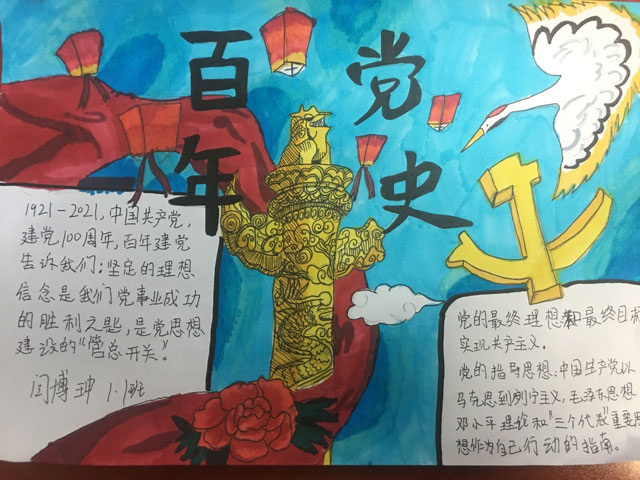 百年
党史
1921-2021,中国共产党,
建党100周年,百年建党
告诉我们:坚定的理想
信念是我们党事业成功
的胜利之匙,是党思想
建设的“管总开关”。
闫博珅 1.1班
党的最终理想和最终目标
实现共产主义。
党的指导思想:中国共产党以
马克思列宁主义,毛泽东思想
邓小平理论和“三个代表”重要思
想作为自己行动的指南。